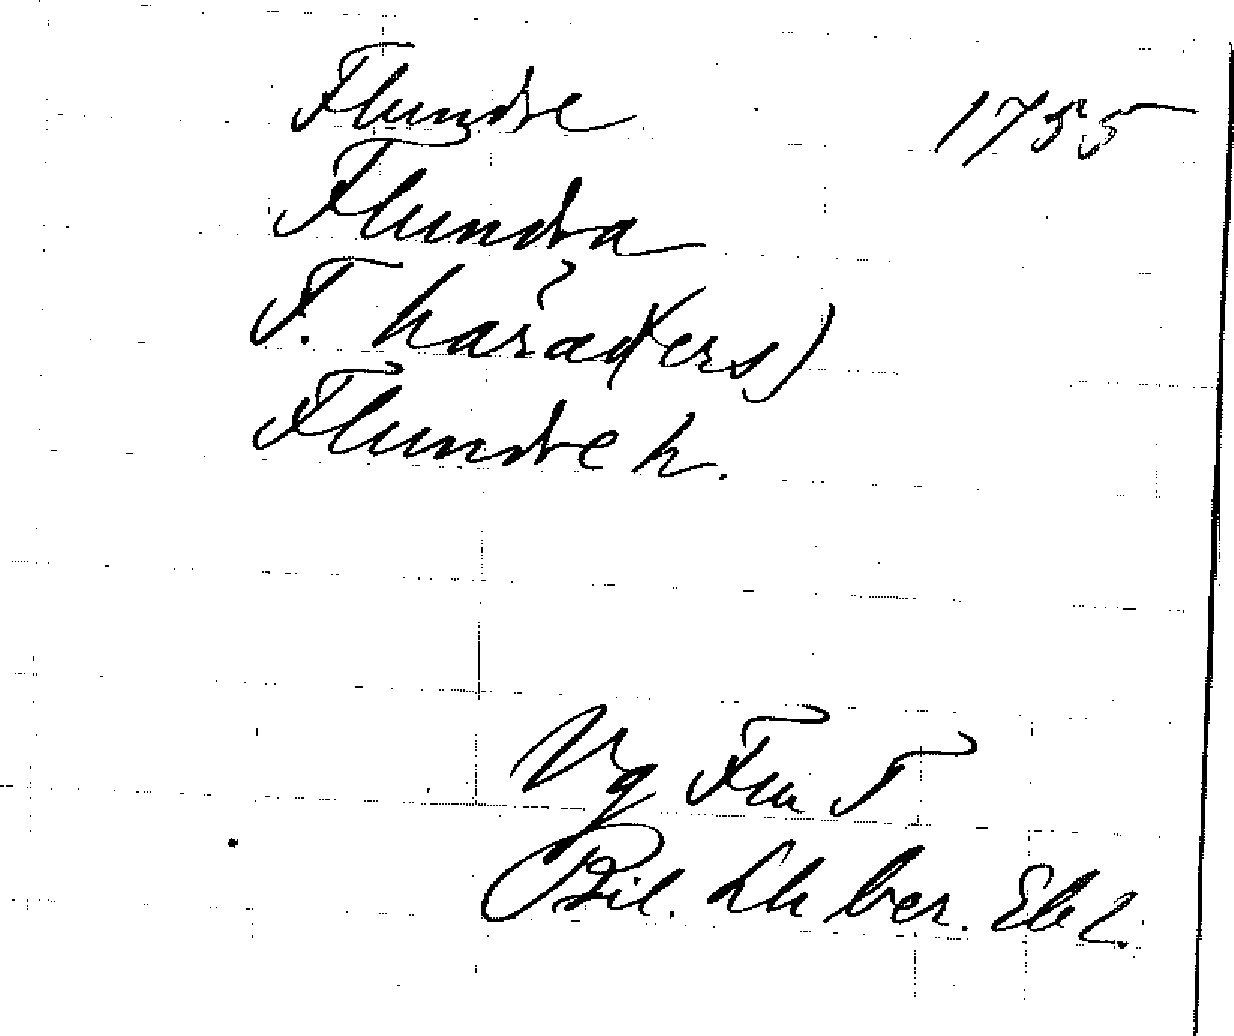 Flundre 1755
Flundra
F. härad(ers)
Flundre h.
Vg Flu F
Bil. Lh ber. Ebl.